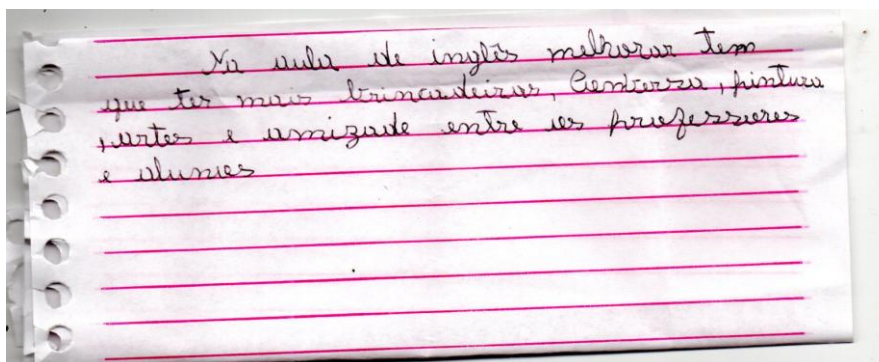 Na aula de inglês melhorar tem
que ter mais brincadeiras, Conversa, pintura
, artes e amizade entre os professores
e alunos